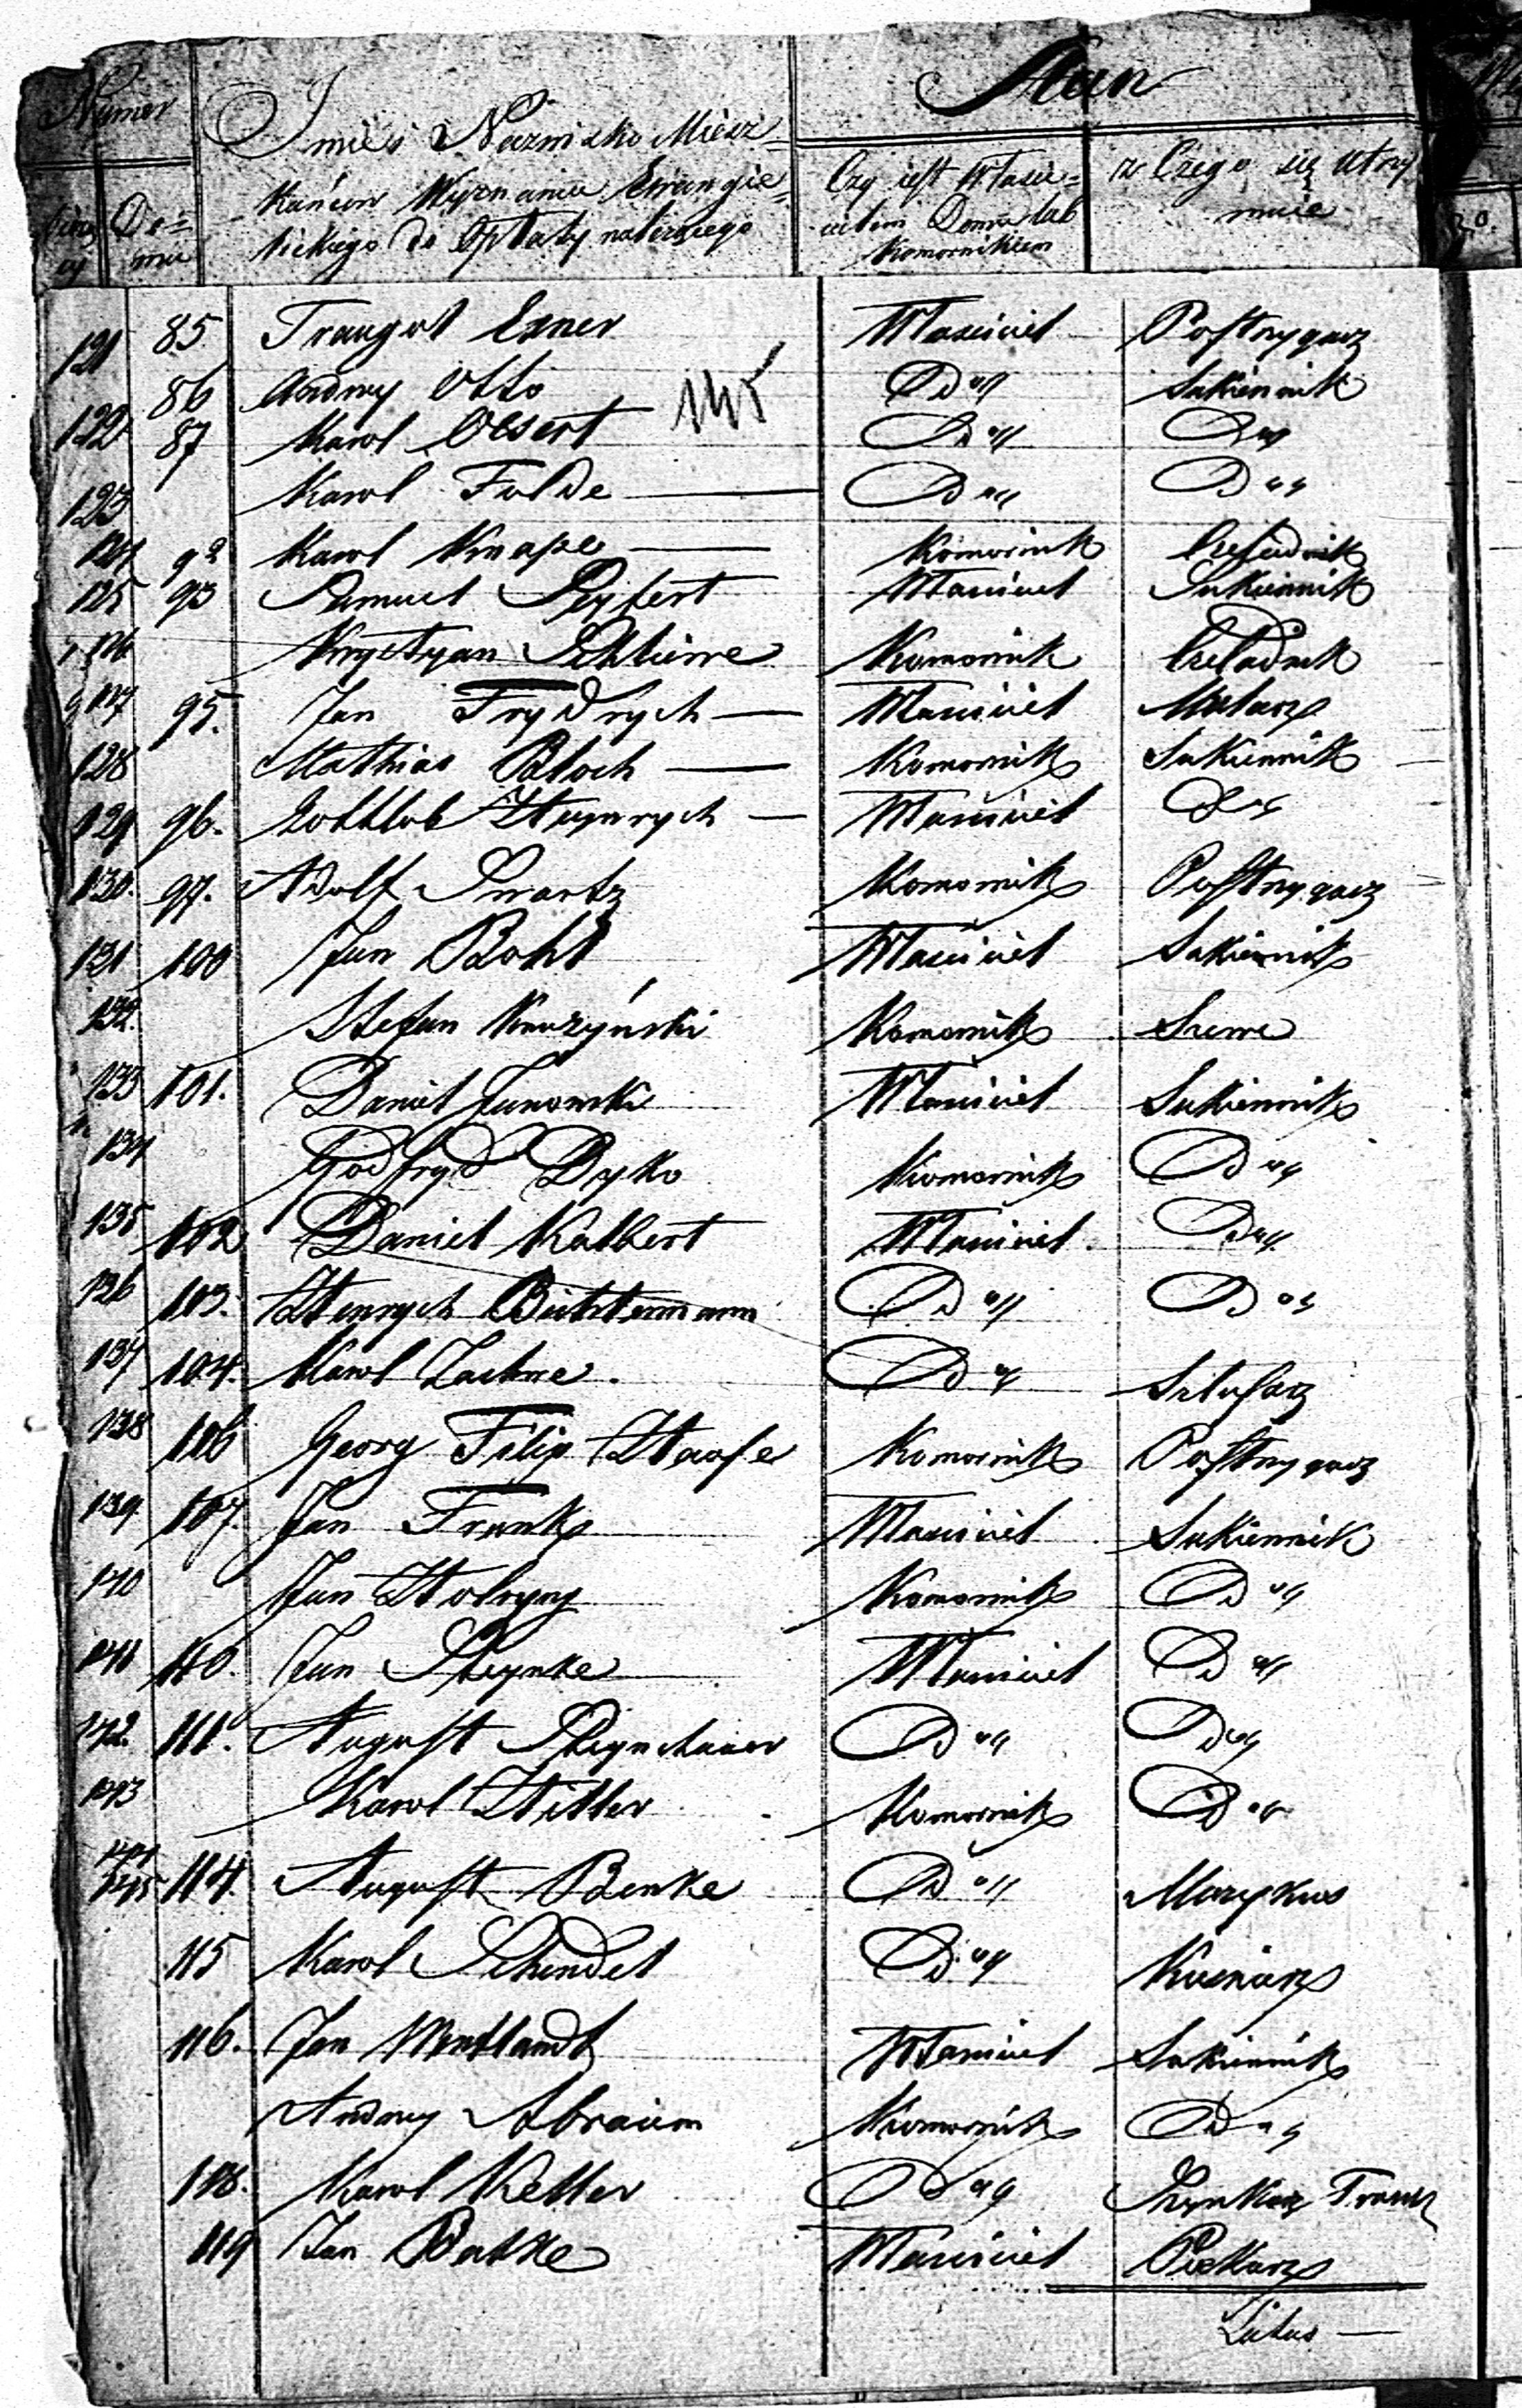 Numer
Stan
Imie i Nazwisko Miesz=
kańców Wyznania Ewangie=
lickiego do Opłaty należącego
Czy iest Właści=
cielem Domu lub
Komornikiem
z Czego się utrzy
muie
Do=
mu
121 85 Traugot Exner Właściciel Postrzygacz
86 Andrzy Otto Do Sukiennik
145
122 87 Karol Olsert Do Do
123 Karol Fulde Do Do
124 92 Karol Knape Komornik Czeladnik
125 93 Samuel Seyfert Właściciel Sukiennik
126 Krystyan Schlieme Komornik Czeladnik
127 95. Jan Frydrych Właściciel Malarz
128 Mathias Bloch Komornik Sukiennik
129 96. Gottlob Heynrych Właściciel Do
130. 97. Adolf Swartz Komornik Postrzygacz
131 100 Jan Bohl Właściciel Sukiennik
132. Stefan Komornik
133 101. Daniel Janowski Właściciel Sukiennik
134 Godfryd Dyko Komornik Do
135 102 Daniel Kalbert Właściciel Do
136 103. Henrych Büchtermann Do Do
137 104. Karol Lachne. Do
138 106 Georg Filip Haase Komornik Postrzygacz
139 107. Jan Frank Właściciel Sukiennik
140 Jan Komornik Do
141 110. Jan Steynke Właściciel Do
142. 111. August Do Do
143 Karol Hitler Komornik Do
144
145 114. August Benke Do Muzykus
115 Karol Schindel Do Kusnierz
116. Jan Wentlandt Właściciel Sukiennik
Andrzy Abraam Komornik Do
118. Karol Keller Do Szynkarz
119 Jan Batke Właściciel Piekarz
Latus